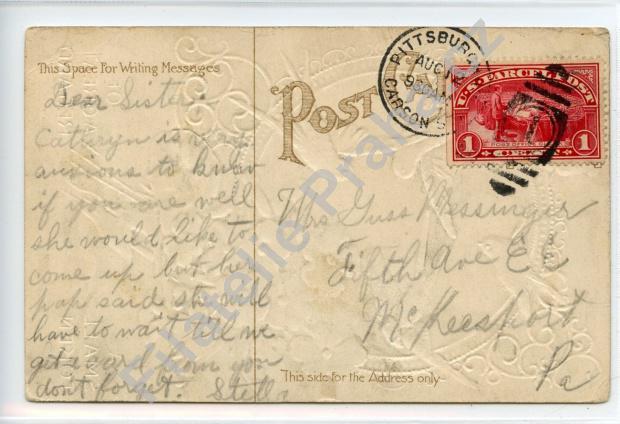 This Space For Writing Messages
Dear Sister:
Cathryn is very
anxious to know
if you are well
she would like to
come up but her
pap said she will
have to wait till we
get a card from you
don't forget. Stella
POST CARD
PITTSBURG
AUG
CARSON
U.S. PARCEL POST
1
POST OFFICE CLERK
1
CENT
Mrs Guss Messinger
Fifth Ave
McKeesport
Pa
This side for the Address only
Filatelie Praha.cz